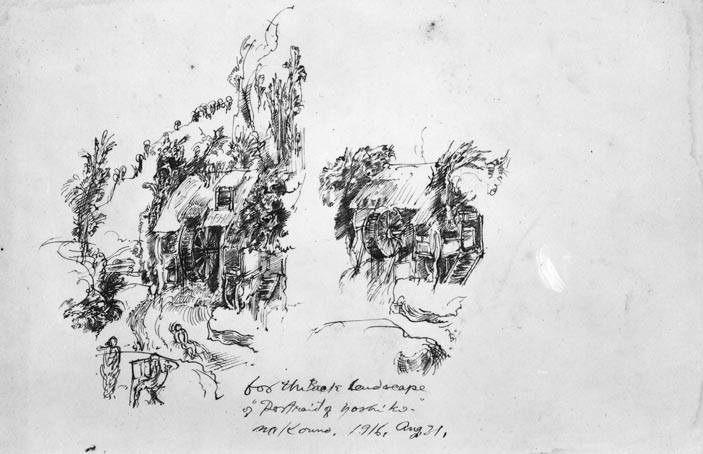 for the Back Landscape
of "Portraid of Yoshiko."
1916, Aug, 21,